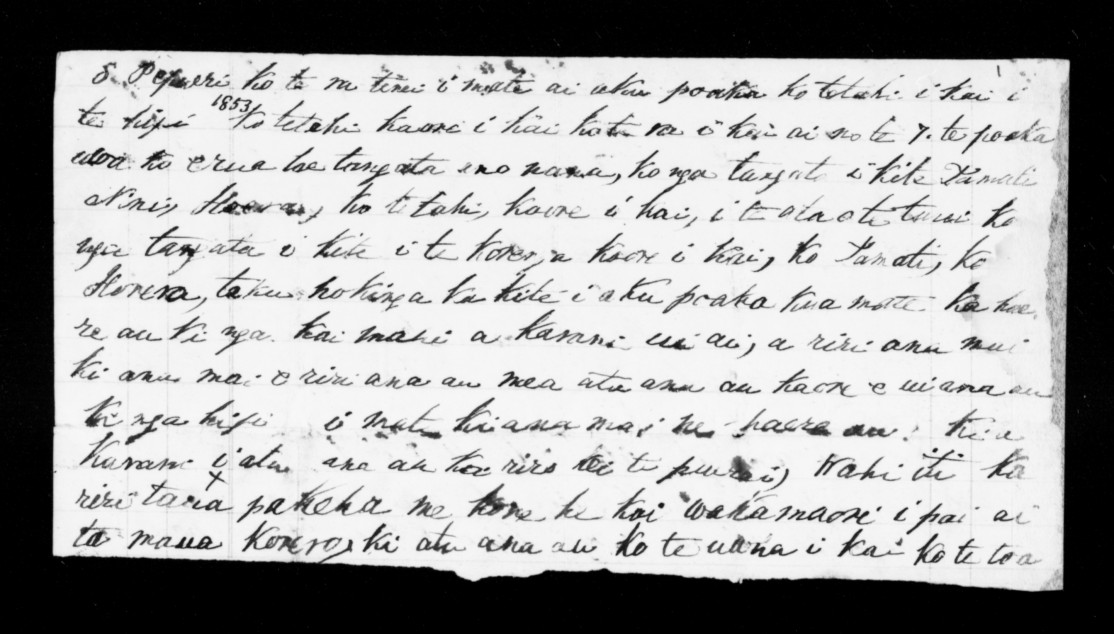 8 Pepueri ko te ra tenei i mate ai aku poaka ko tetahi i kai i
te hipi 1853 ko tetahi kaore i kai ko te ra i kai ai no te 7. te poaka
uwa ko erua he tangata ano nana, ko nga tangata i kite Tamati
Nini, ko tetahi, kaore i kai, i te ata o te turei ko
nga tangata i kite i te korenga kaore i kai, ko Tamati, ko
Horera, taku hokinga ka kite i aku poaka kua mate. ka hae
re au ki nga kai mahi a karani ui ai, a riri ana mai
ki ana mai e riri ana au mea atu ana au kaore e ui ana au
ki nga hipi i mate ki ana mai ne haere au. ki a
Karani i atu ana au ka riro ki te purei, Wahi iti ka
riri taua pakeha me kore he kai wakamaori i pai ai
ta maua korero, ki atu ana au ko te uwha i kai ko te toa